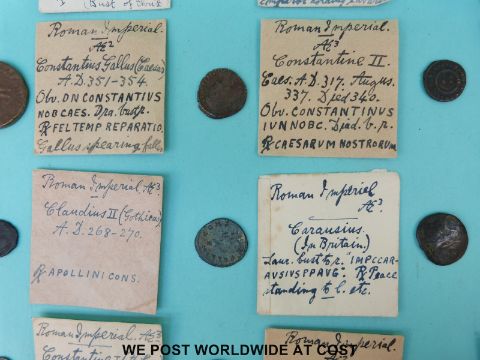 (Bust of
emperor
Roman Imperial.
Æ2
Constantius Gallus (Caesar)
A.D. 351–354.
Obv. DN CONSTANTIUS
NOB CAES. Dra. bust r.
℞ FEL TEMP REPARATIO.
Gallus spearing falls
Roman Imperial.
Æ3
Constantine II.
Caes. A.D. 317. Augus.
337. Died 340.
Obv. CONSTANTINUS
IUN NOBC. Diad. b. r.
℞ CAESARUM NOSTRORUM
Roman Imperial Æ3
Claudius II (Gothicus)
A.D. 268–270.
℞ APOLLINI CONS.
Roman Imperial
Æ3.
Carausius.
(In Britain.)
Laur. bust to r. "IMP C CAR-
AUSIUS P P AUG". ℞ Peace
standing to l. etc.
Roman Imperial. Æ3
Constantine
Roman Imperial.
WE POST WORLDWIDE AT COST